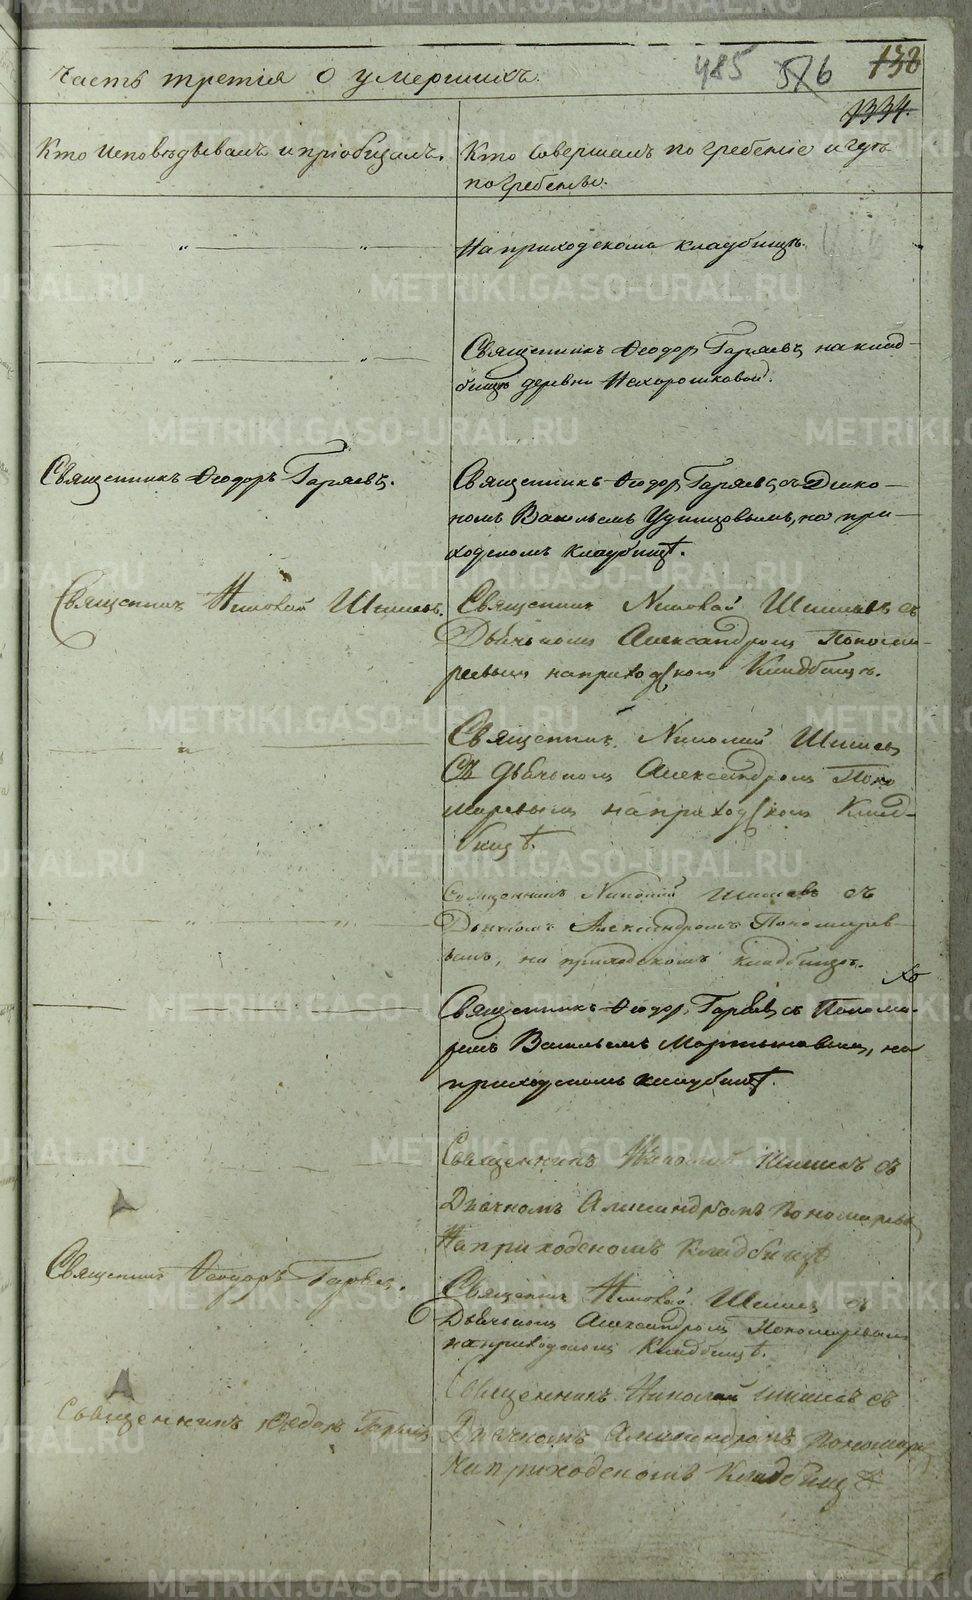 Часть третія о умершихъ.
485 516 138
1334.
Кто исповѣдывалъ и пріобщалъ.
Кто совершалъ погребеніе и гдѣ
погребены.
На приходскомъ кладбищѣ.
Священникъ Ѳеодоръ Гаряевъ, на клад-
бищѣ деревни Нехорошковой.
Священникъ Ѳеодоръ Гаряевъ.
Священникъ Ѳеодоръ Гаряевъ съ Діако-
номъ Васильемъ Удинцовымъ, на при-
ходскомъ кладбищѣ.
Священникъ Николай Шишевъ.
Священникъ Николай Шишевъ съ
Дьячкомъ Александромъ Понома-
ревымъ на приходскомъ кладбищѣ.
Священникъ Николай Шишевъ
Съ Дьячкомъ Александромъ Поно
маревымъ на приходскомъ Клад-
бищѣ.
Священникъ Николай Шишевъ съ
Дьячкомъ Александромъ Пономарев-
ымъ, на приходскомъ кладбищѣ.
Священникъ Ѳеодоръ Гаряевъ съ Понома-
ремъ Васильемъ Мартыновымъ, на
приходскомъ кладбищѣ.
Священникъ Николай Шишевъ съ
Дьячкомъ Александромъ Пономарев
На приходскомъ Кладбищѣ
Священникъ Ѳеодоръ Гаряевъ.
Священникъ Николай Шишевъ съ
Дьячкомъ Александромъ Пономаревымъ
на приходскомъ Кладбищѣ.
Священникъ Ѳедоръ Гаряевъ
Священникъ Николай Шишевъ съ
Дьячкомъ Александромъ Пономарев
На приходскомъ Кладбищѣ
METRIKI.GASO-URAL.RU